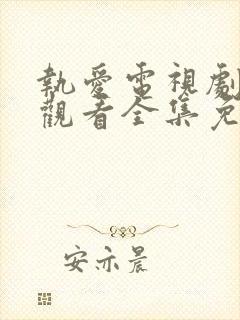 執愛電視劇
觀看全集免
安亦晨